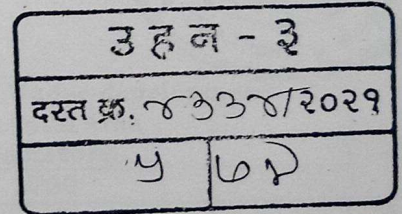 उ ह न - ३
दस्त क्र. ४३३४/२०२१
५